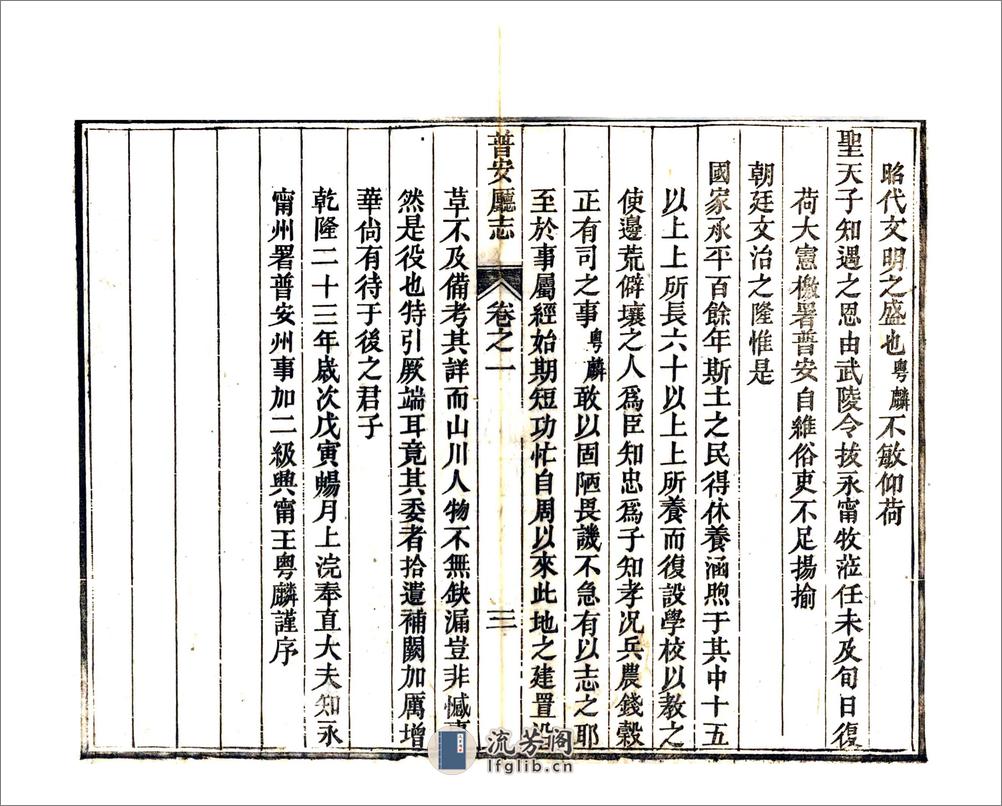 昭代文明之盛也粵麟不敏仰荷
聖天子知遇之恩由武陵令拔永甯牧蒞任未及旬日復
荷大憲檄署普安自維俗吏不足揚揄
朝廷文治之隆惟是
國家承平百餘年斯土之民得休養涵煦于其中十五
以上上所長六十以上上所養而復設學校以教之
使邊荒僻壤之人爲臣知忠爲子知孝况兵農錢穀
正有司之事粵麟敢以固陋畏譏不急有以志之耶
至於事屬經始期短功忙自周以來此地之建置沿
普安廳志
卷之一
三
草不及備考其詳而山川人物不無缺漏豈非憾事
然是役也特引厥端耳竟其委者拾遺補闕加厲增
華尙有待于後之君子
乾隆二十三年歲次戊寅暢月上浣奉直大夫知永
甯州署普安州事加二級興甯王粵麟謹序
流芳阁
lfglib.cn